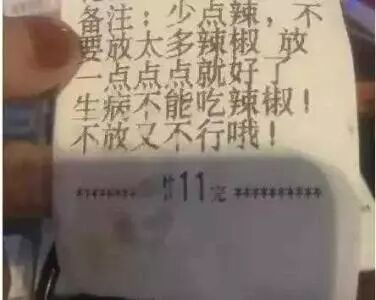 备注：少点辣，不
要放太多辣椒，放
一点点点就好了
生病不能吃辣椒！
不放又不行哦！
************ #11完 ************